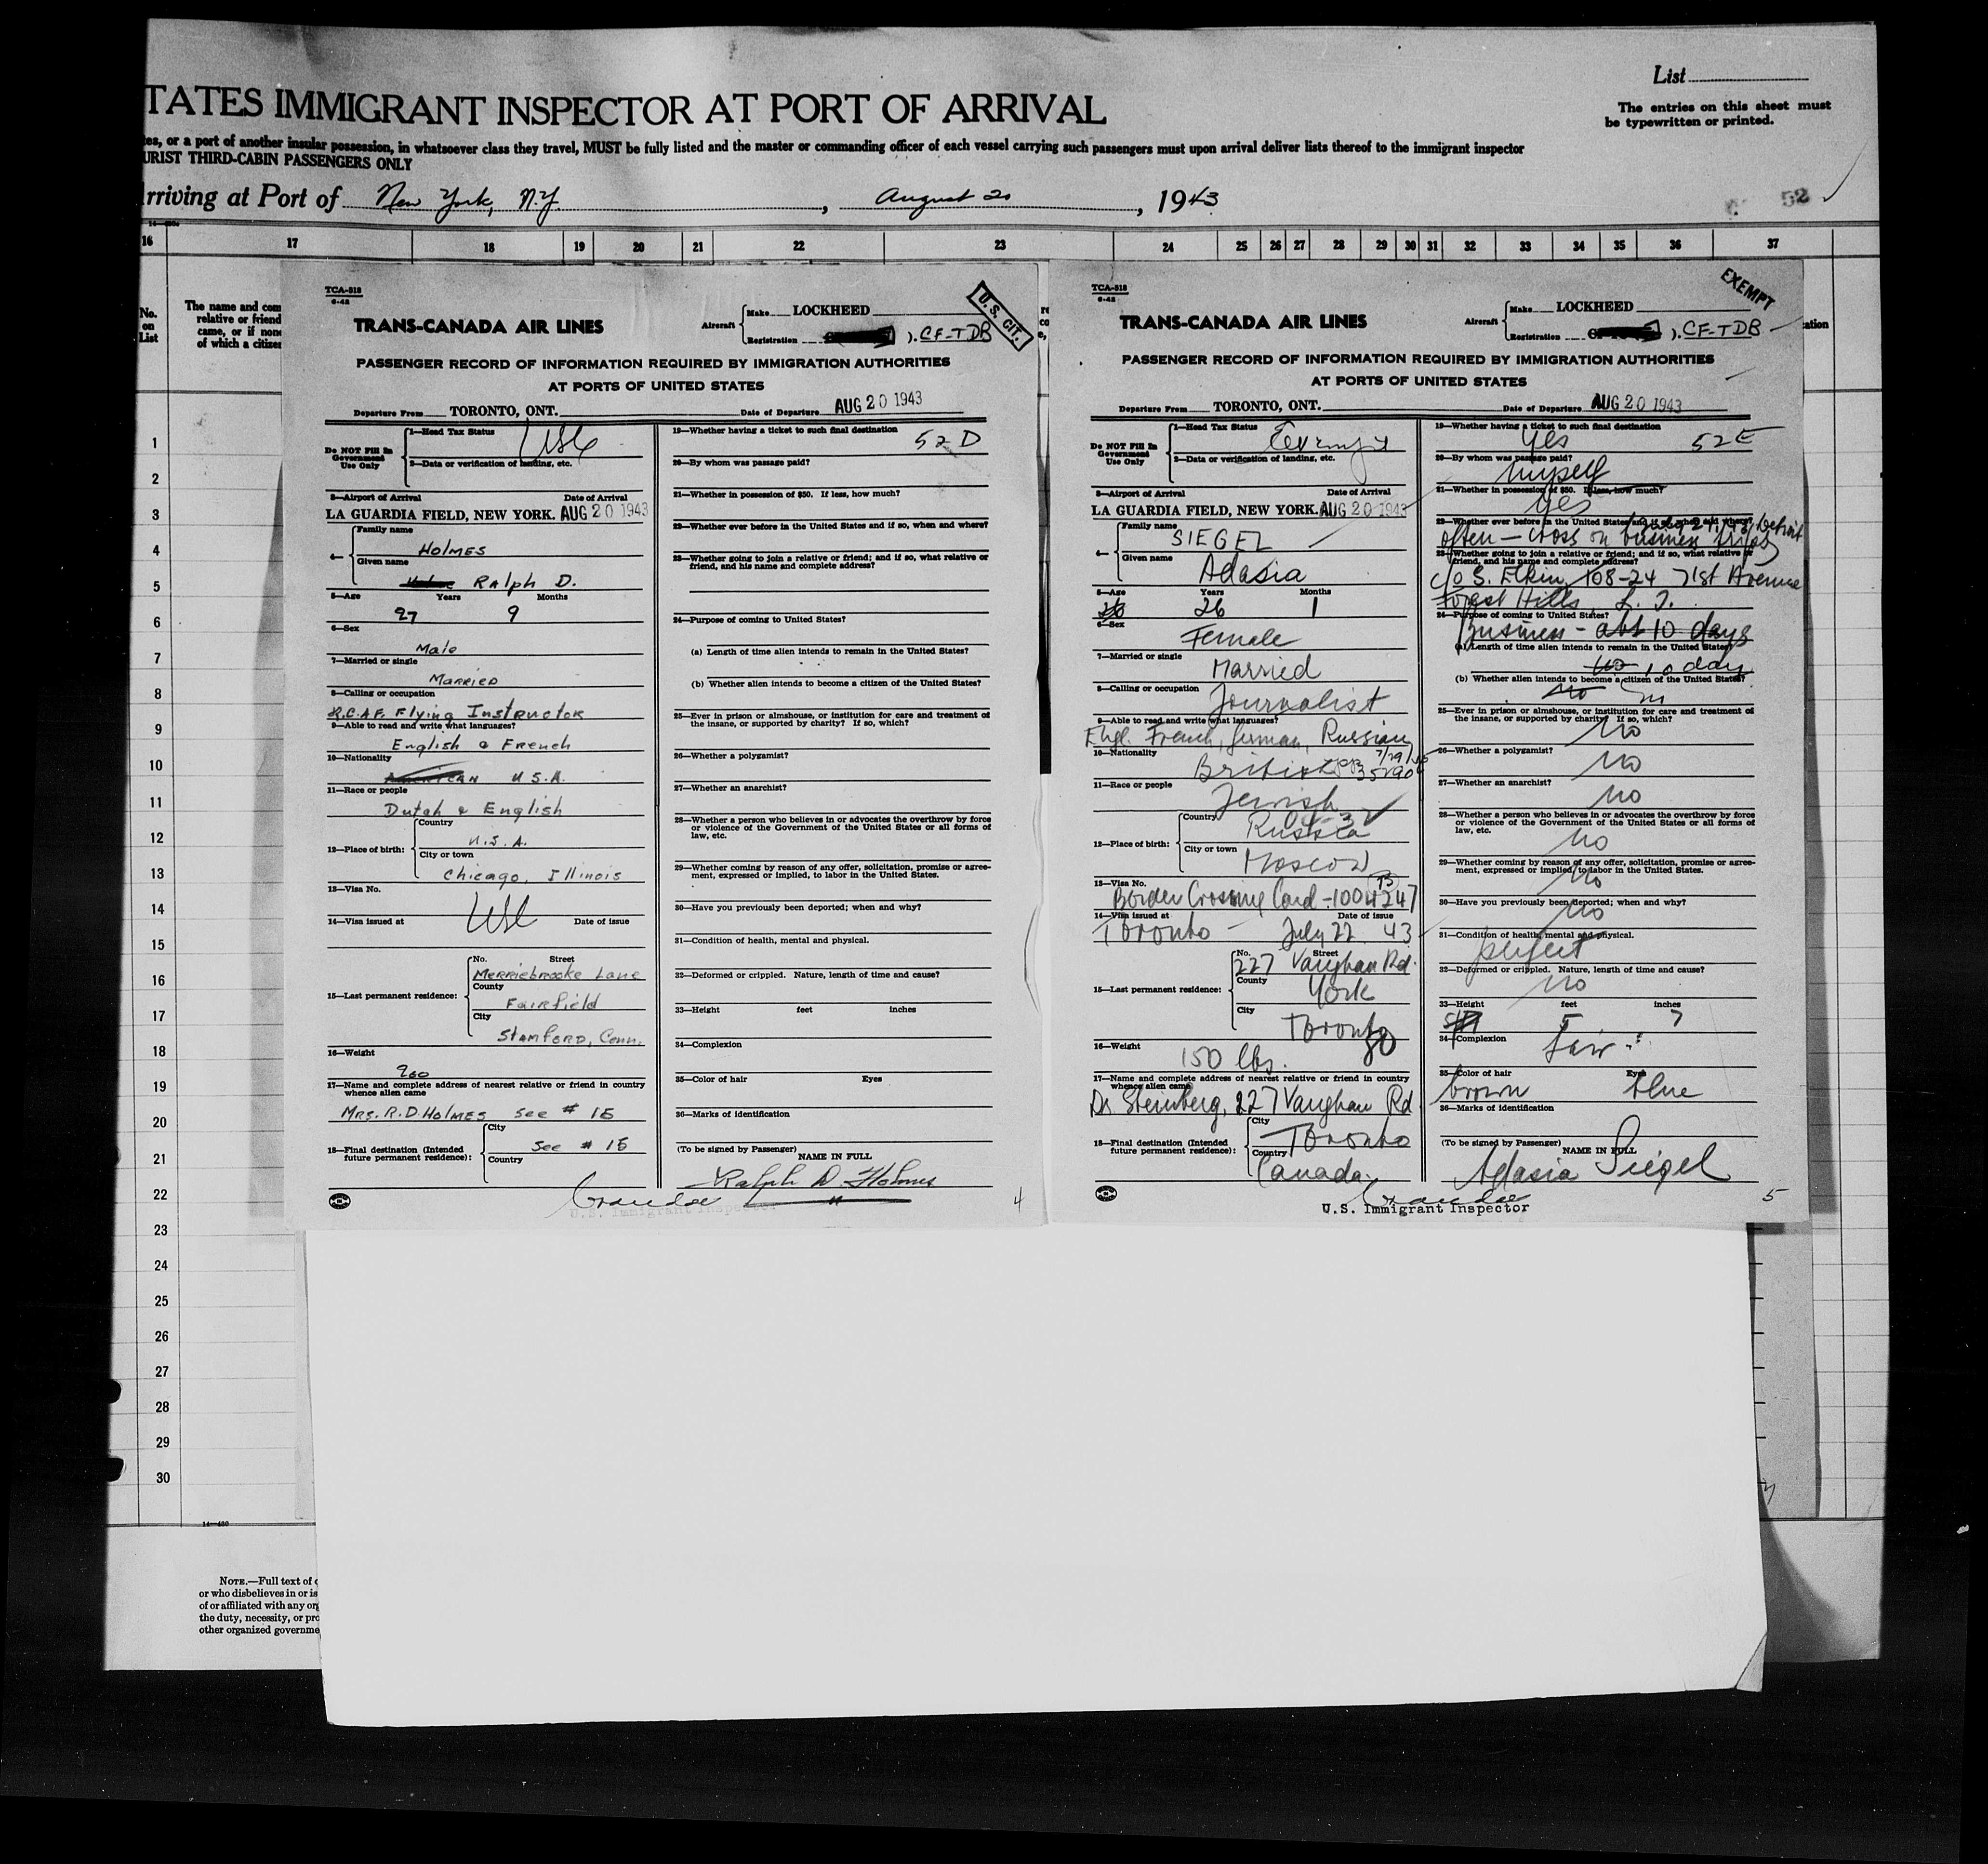 List
TATES IMMIGRANT INSPECTOR AT PORT OF ARRIVAL
The entries on this sheet must
be typewritten or printed.
tes, or a port of another insular possession, in whatsoever class they travel, MUST be fully listed and the master or commanding officer of each vessel carrying such passengers must upon arrival deliver lists thereof to the immigrant inspector
URIST THIRD-CABIN PASSENGERS ONLY
rriving at Port of New York, N.Y. , August 20 , 1943
52
16 17 18 19 20 21 22 23 24 25 26 27 28 29 30 31 32 33 34 35 36 37
No.
on
List
The name and com
relative or friend
came, or if none
of which a citizen
ation
1
2
3
4
5
6
7
8
9
10
11
12
13
14
15
16
17
18
19
20
21
22
23
24
25
26
27
28
29
30
TCA-518
6-42
U.S. CIT.
TRANS-CANADA AIR LINES
Aircraft
Make LOCKHEED
Registration ). CF-TDB
PASSENGER RECORD OF INFORMATION REQUIRED BY IMMIGRATION AUTHORITIES
AT PORTS OF UNITED STATES
Departure From TORONTO, ONT. Date of Departure AUG 20 1943
Do NOT Fill In
Government
Use Only
1—Head Tax Status USC
2—Data or verification of landing, etc.
3—Airport of Arrival Date of Arrival
LA GUARDIA FIELD, NEW YORK. AUG 20 1943
4—
Family name
HOLMES
Given name
Ralph D.
5—Age Years Months
27 9
6—Sex
Male
7—Married or single
Married
8—Calling or occupation
R.C.A.F. Flying Instructor
9—Able to read and write what languages?
English & French
10—Nationality
American U.S.A.
11—Race or people
Dutch & English
12—Place of birth:
Country
U.S.A.
City or town
Chicago, Illinois
13—Visa No.
USC
14—Visa issued at Date of issue
15—Last permanent residence:
No. Street
Merriebrooke Lane
County
Fairfield
City
Stamford, Conn.
16—Weight
200
17—Name and complete address of nearest relative or friend in country
whence alien came
Mrs. R.D. Holmes See # 15
18—Final destination (Intended
future permanent residence):
City
See # 15
Country
19—Whether having a ticket to such final destination
52 D
20—By whom was passage paid?
21—Whether in possession of $50. If less, how much?
22—Whether ever before in the United States and if so, when and where?
23—Whether going to join a relative or friend; and if so, what relative or
friend, and his name and complete address?
24—Purpose of coming to United States?
(a) Length of time alien intends to remain in the United States?
(b) Whether alien intends to become a citizen of the United States?
25—Ever in prison or almshouse, or institution for care and treatment of
the insane, or supported by charity? If so, which?
26—Whether a polygamist?
27—Whether an anarchist?
28—Whether a person who believes in or advocates the overthrow by force
or violence of the Government of the United States or all forms of
law, etc.
29—Whether coming by reason of any offer, solicitation, promise or agree-
ment, expressed or implied, to labor in the United States.
30—Have you previously been deported; when and why?
31—Condition of health, mental and physical.
32—Deformed or crippled. Nature, length of time and cause?
33—Height feet inches
34—Complexion
35—Color of hair Eyes
36—Marks of identification
(To be signed by Passenger)
NAME IN FULL
Ralph D Holmes
U.S. Immigrant Inspector
4
TCA-518
6-42
EXEMPT
TRANS-CANADA AIR LINES
Aircraft
Make LOCKHEED
Registration ). CF-TDB
PASSENGER RECORD OF INFORMATION REQUIRED BY IMMIGRATION AUTHORITIES
AT PORTS OF UNITED STATES
Departure From TORONTO, ONT. Date of Departure AUG 20 1943
Do NOT Fill In
Government
Use Only
1—Head Tax Status Exempt
2—Data or verification of landing, etc.
3—Airport of Arrival Date of Arrival
LA GUARDIA FIELD, NEW YORK. AUG 20 1943
4—
Family name
SIEGEL
Given name
Adasia
5—Age Years Months
26 1
6—Sex
Female
7—Married or single
Married
8—Calling or occupation
Journalist
9—Able to read and write what languages?
Engl. French, German, Russian
10—Nationality
British
11—Race or people
Jewish
12—Place of birth:
Country
Russia
City or town
Moscow
13—Visa No.
Border Crossing Card - 1004247
14—Visa issued at Date of issue
Toronto - July 22 43
15—Last permanent residence:
No. Street
227 Vaughan Rd.
County
York
City
Toronto
16—Weight
150 lbs.
17—Name and complete address of nearest relative or friend in country
whence alien came
Dr Steinberg, 227 Vaughan Rd
18—Final destination (Intended
future permanent residence):
City
Toronto
Country
Canada.
19—Whether having a ticket to such final destination
yes 52E
20—By whom was passage paid?
myself
21—Whether in possession of $50. If less, how much?
yes
22—Whether ever before in the United States and if so, when and where?
Detroit
often - cross on business trips
23—Whether going to join a relative or friend; and if so, what relative or
friend, and his name and complete address?
c/o S. Elkin, 108-24 71st Avenue
Forest Hills, L. I.
24—Purpose of coming to United States?
Business - abt 10 days
(a) Length of time alien intends to remain in the United States?
10 days
(b) Whether alien intends to become a citizen of the United States?
no
25—Ever in prison or almshouse, or institution for care and treatment of
the insane, or supported by charity? If so, which?
no
26—Whether a polygamist?
no
27—Whether an anarchist?
no
28—Whether a person who believes in or advocates the overthrow by force
or violence of the Government of the United States or all forms of
law, etc.
no
29—Whether coming by reason of any offer, solicitation, promise or agree-
ment, expressed or implied, to labor in the United States.
no
30—Have you previously been deported; when and why?
no
31—Condition of health, mental and physical.
perfect
32—Deformed or crippled. Nature, length of time and cause?
no
33—Height feet inches
5 7
34—Complexion
fair
35—Color of hair Eyes
brown blue
36—Marks of identification
(To be signed by Passenger)
NAME IN FULL
Adasia Siegel
U.S. Immigrant Inspector
5
14—480
NOTE.—Full text of
or who disbelieves in or is
of or affiliated with any org
the duty, necessity, or pro
other organized governme